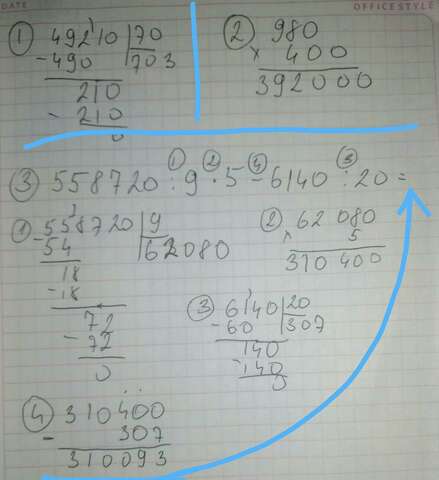 DATE OFFICE STYLE
① 49210 | 70
- 490 703
210
- 210
0
② 980
× 400
392000
③ 558720 : 9 · 5 - 6140 : 20 =
① ② ④ ③
① 558720 | 9
- 54 62080
18
- 18
72
- 72
0
② 62080
× 5
310400
③ 6140 | 20
- 60 307
140
- 140
0
④ 310400
- 307
310093